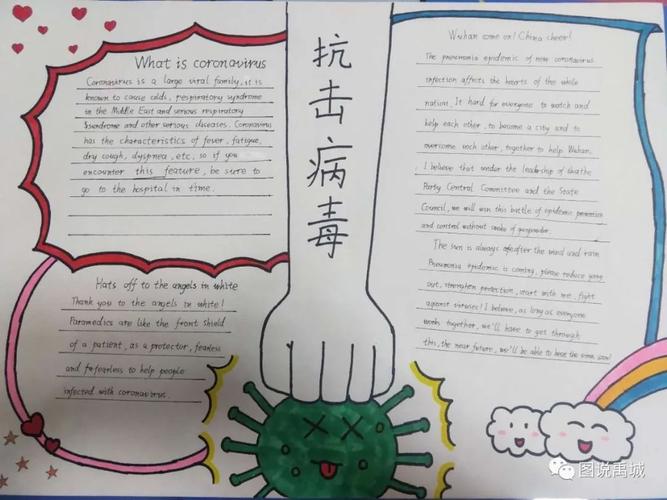 What is coronavirus
Coronavirus is a large viral family, it is
known to cause colds, respiratory syndrome
in the Middle East and serious respiratory
syndrome and other serious diseases. Coronavirus
has the characteristics of fever, fatigue,
dry cough, dyspnea, etc, so if you
encounter this feature, be sure to
go to the hospital in time.
Hats off to the angels in white
Thank you to the angels in white!
Paramedics are like the front shield
of a patient, as a protector, fearless
and fearless to help people
infected with coronavirus.
抗击病毒
Wuhan come on! China cheer!
The pneumonia epidemic of new coronavirus
infection affects the hearts of the whole
nation. It hard for everyone to watch and
help each other, to become a city and to
overcome each other, together to help Wuhan.
I believe that under the leadership of the
Party Central Committee and the State
Council, we will win this battle of epidemic prevention
and control without smoke of gunpowder.
The sun is always after the wind and rain
Pneumonia epidemic is coming, please reduce going
out, strengthen protection, start with me, fight
against viruses! I believe, as long as everyone
works together, we'll have to get through
this, the near future, we'll be able to the some soon!
图说禹城